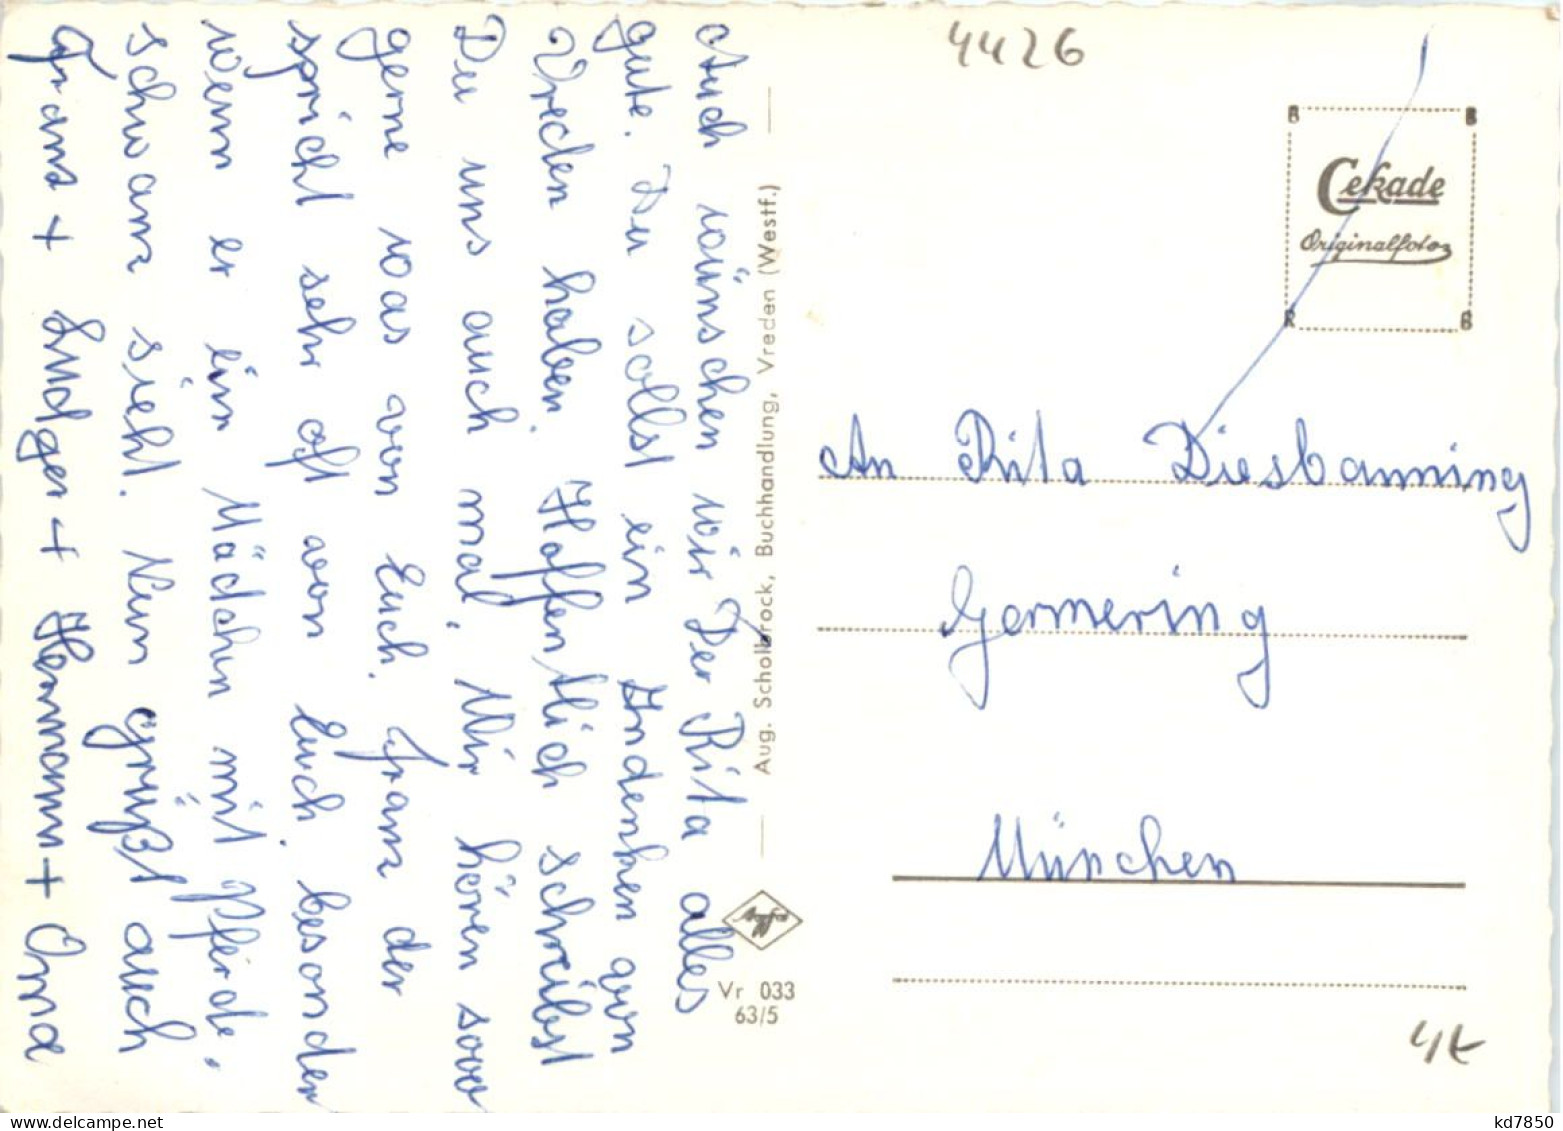 4426
B B
Cekade
Originalfoto
R B
Auch wünschen wir Der Rita alles
gute. Du sollst ein Andenken von
Vreden haben. Hoffentlich schreibst
Du uns auch mal. Wir hören sooo
gerne was von Euch. Franz der
spricht sehr oft von Euch. besonder
wenn er ein Mädchen mit Pferde,
schwanz sieht. Nun grüßt auch
Franz + Ludger + Hermann + Oma
Aug. Scholbrock, Buchhandlung, Vreden (Westf.)
Vr 033
63/5
An Rita Diesbanning
Germering
München
kd7850